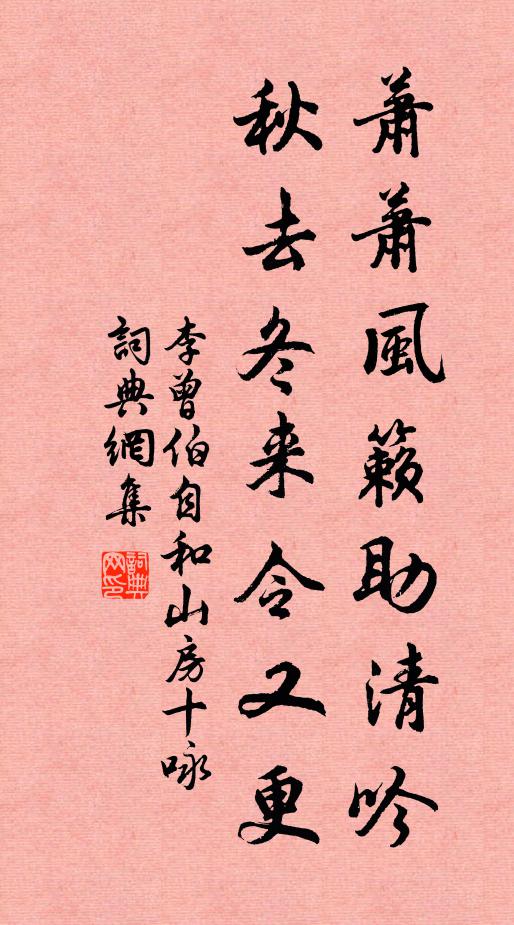 蕭蕭風籟助清吟
秋去冬来令又更
李曾伯自和山房十咏
詞典網集
詞典網印